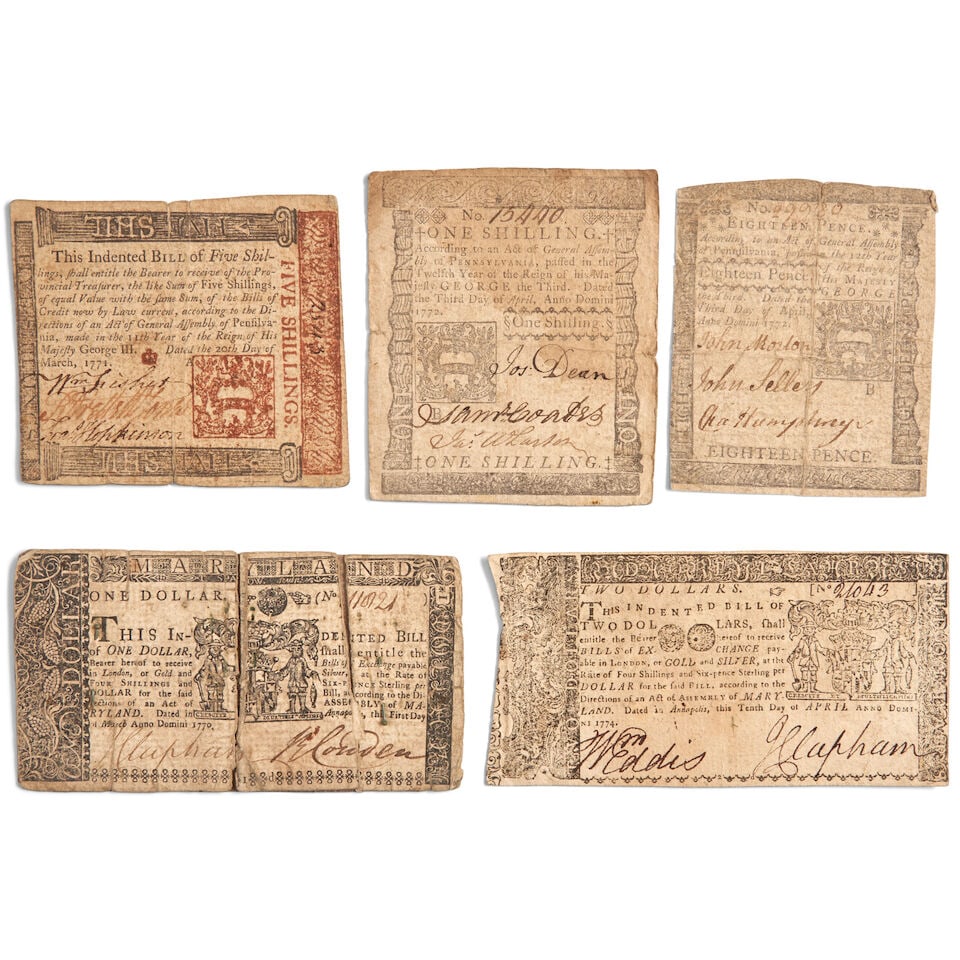 This Indented BILL of Five Shil-
lings, shall entitle the Bearer to receive of the Pro-
vincial Treasurer, the like Sum of Five Shillings,
of equal Value with the same Sum, of the Bills of
Credit now by Law current, according to the Di-
rections of an Act of General Assembly of Pensilva-
nia, made in the 11th Year of the Reign of His
Majesty George III. Dated the 20th Day of
March, 1771.
FIVE SHILLINGS
No. 15440
ONE SHILLING.
According to an Act of General Assem-
bly of PENNSYLVANIA, passed in the
Twelfth Year of the Reign of his Ma-
jesty GEORGE the Third. Dated
the Third Day of April, Anno Domini
1772.
One Shilling.
Jos. Dean
B
Saml. Coates
ONE SHILLING.
No.
EIGHTEEN PENCE,
According to an Act of General Assembly
of Pennsylvania, passed in the 12th Year
of the Reign of
Eighteen Pence,
His MAJESTY
GEORGE
the third. Dated the
Third Day of April,
Anno Domini 1772.
John Morton
John Sellers
B
Cha Humphreys
EIGHTEEN PENCE.
MARYLAND
ONE DOLLAR
(No
THIS IN-
DENTED BILL
of ONE DOLLAR,
shall entitle the
Bearer hereof to receive
Bills of Exchange payable
in London, or Gold and
Silver, at the Rate of
FOUR SHILLINGS and
SIX-PENCE Sterling per
DOLLAR for the said
Bill, according to the Di-
rections of an Act of
ASSEMBLY of MA-
RYLAND. Dated in
Annapolis, this First Day
of March Anno Domini 1770.
J Clapham
R Couden
TWO DOLLARS.
[No 21043
THIS INDENTED BILL OF
TWO DOLLARS, shall
entitle the Bearer hereof to receive
BILLS OF EXCHANGE pay-
able in LONDON, or GOLD and SILVER, at the
Rate of Four Shillings and Six-pence Sterling per
DOLLAR for the said BILL, according to the
Directions of an Act of ASSEMBLY of MARY-
LAND. Dated in Annapolis, this Tenth Day of APRIL ANNO DOMI-
NI 1774.
Wm Eddis
J Clapham